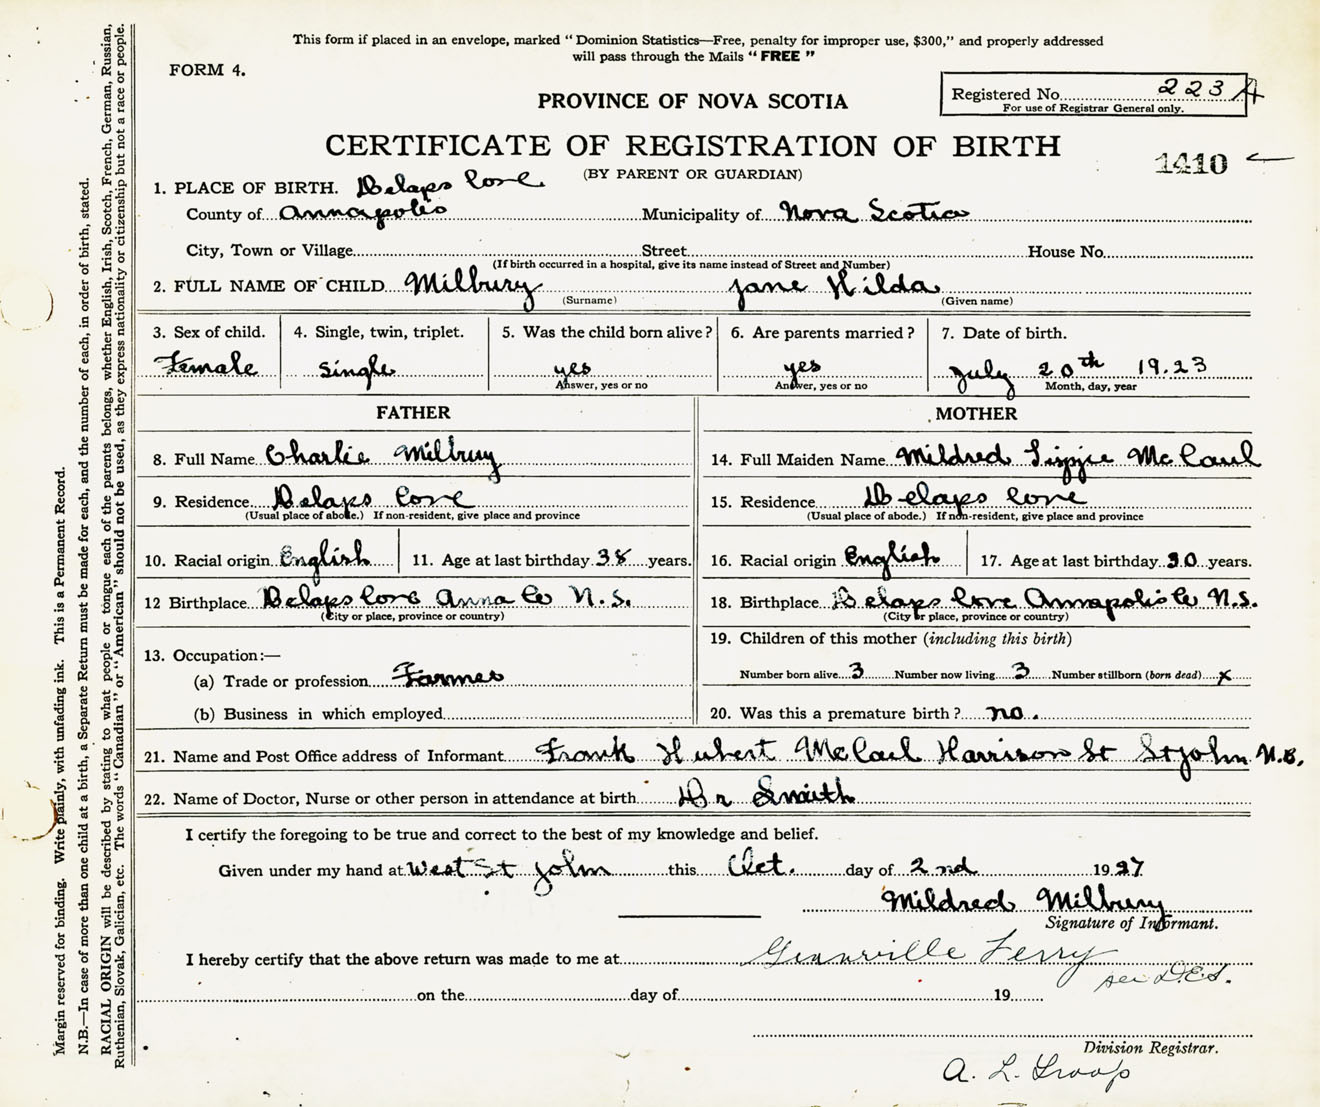 This form if placed in an envelope, marked “Dominion Statistics—Free, penalty for improper use, $300,” and properly addressed
will pass through the Mails “FREE”
FORM 4.
Registered No. 223 A
For use of Registrar General only.
PROVINCE OF NOVA SCOTIA
CERTIFICATE OF REGISTRATION OF BIRTH
1410
(BY PARENT OR GUARDIAN)
1. PLACE OF BIRTH. Delaps Cove
County of Annapolis Municipality of Nova Scotia
City, Town or Village Street House No.
(If birth occurred in a hospital, give its name instead of Street and Number)
2. FULL NAME OF CHILD Milbury Jane Hilda
(Surname) (Given name)
3. Sex of child. 4. Single, twin, triplet. 5. Was the child born alive? 6. Are parents married? 7. Date of birth.
Female single yes yes July 20th 1923
Answer, yes or no Answer, yes or no Month, day, year
FATHER MOTHER
8. Full Name Charlie Milbury 14. Full Maiden Name Mildred Lizzie McCaul
9. Residence Delaps Cove 15. Residence Delaps Cove
(Usual place of abode.) If non-resident, give place and province (Usual place of abode.) If non-resident, give place and province
10. Racial origin English 11. Age at last birthday 38 years. 16. Racial origin English 17. Age at last birthday 30 years.
12 Birthplace Delaps Cove Anna Co N.S. 18. Birthplace Delaps Cove Annapolis Co N.S.
(City or place, province or country) (City or place, province or country)
19. Children of this mother (including this birth)
13. Occupation:—
(a) Trade or profession Farmer Number born alive 3 Number now living 3 Number stillborn (born dead) x
(b) Business in which employed 20. Was this a premature birth? no.
21. Name and Post Office address of Informant Frank Hubert McCaul Harrison St St John N.B.
22. Name of Doctor, Nurse or other person in attendance at birth Dr Smith
I certify the foregoing to be true and correct to the best of my knowledge and belief.
Given under my hand at West St John this Oct. day of 2nd 1927
Mildred Milbury
Signature of Informant.
I hereby certify that the above return was made to me at Granville Ferry
per D.E.S.
on the day of 19
Division Registrar.
A. L. Troop
Margin reserved for binding. Write plainly, with unfading ink. This is a Permanent Record.
N.B.—In case of more than one child at a birth, a Separate Return must be made for each, and the number of each, in order of birth, stated.
RACIAL ORIGIN will be described by stating to what people or tongue each of the parents belongs, whether English, Irish, Scotch, French, German, Russian,
Ruthenian, Slovak, Galician, etc. The words “Canadian” or “American” should not be used, as they express nationality or citizenship but not a race or people.